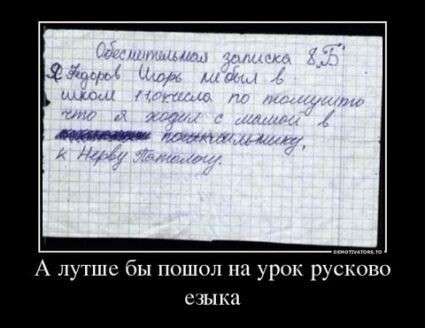 Обеснительная записка 8„Б"
Я Федоров Игорь не был в
школе 11,ого числа по томушто
что я ходил с мамой в
к Нерву Патологу.
DEMOTIVATORS.TO
А лутше бы пошол на урок русково
езыка